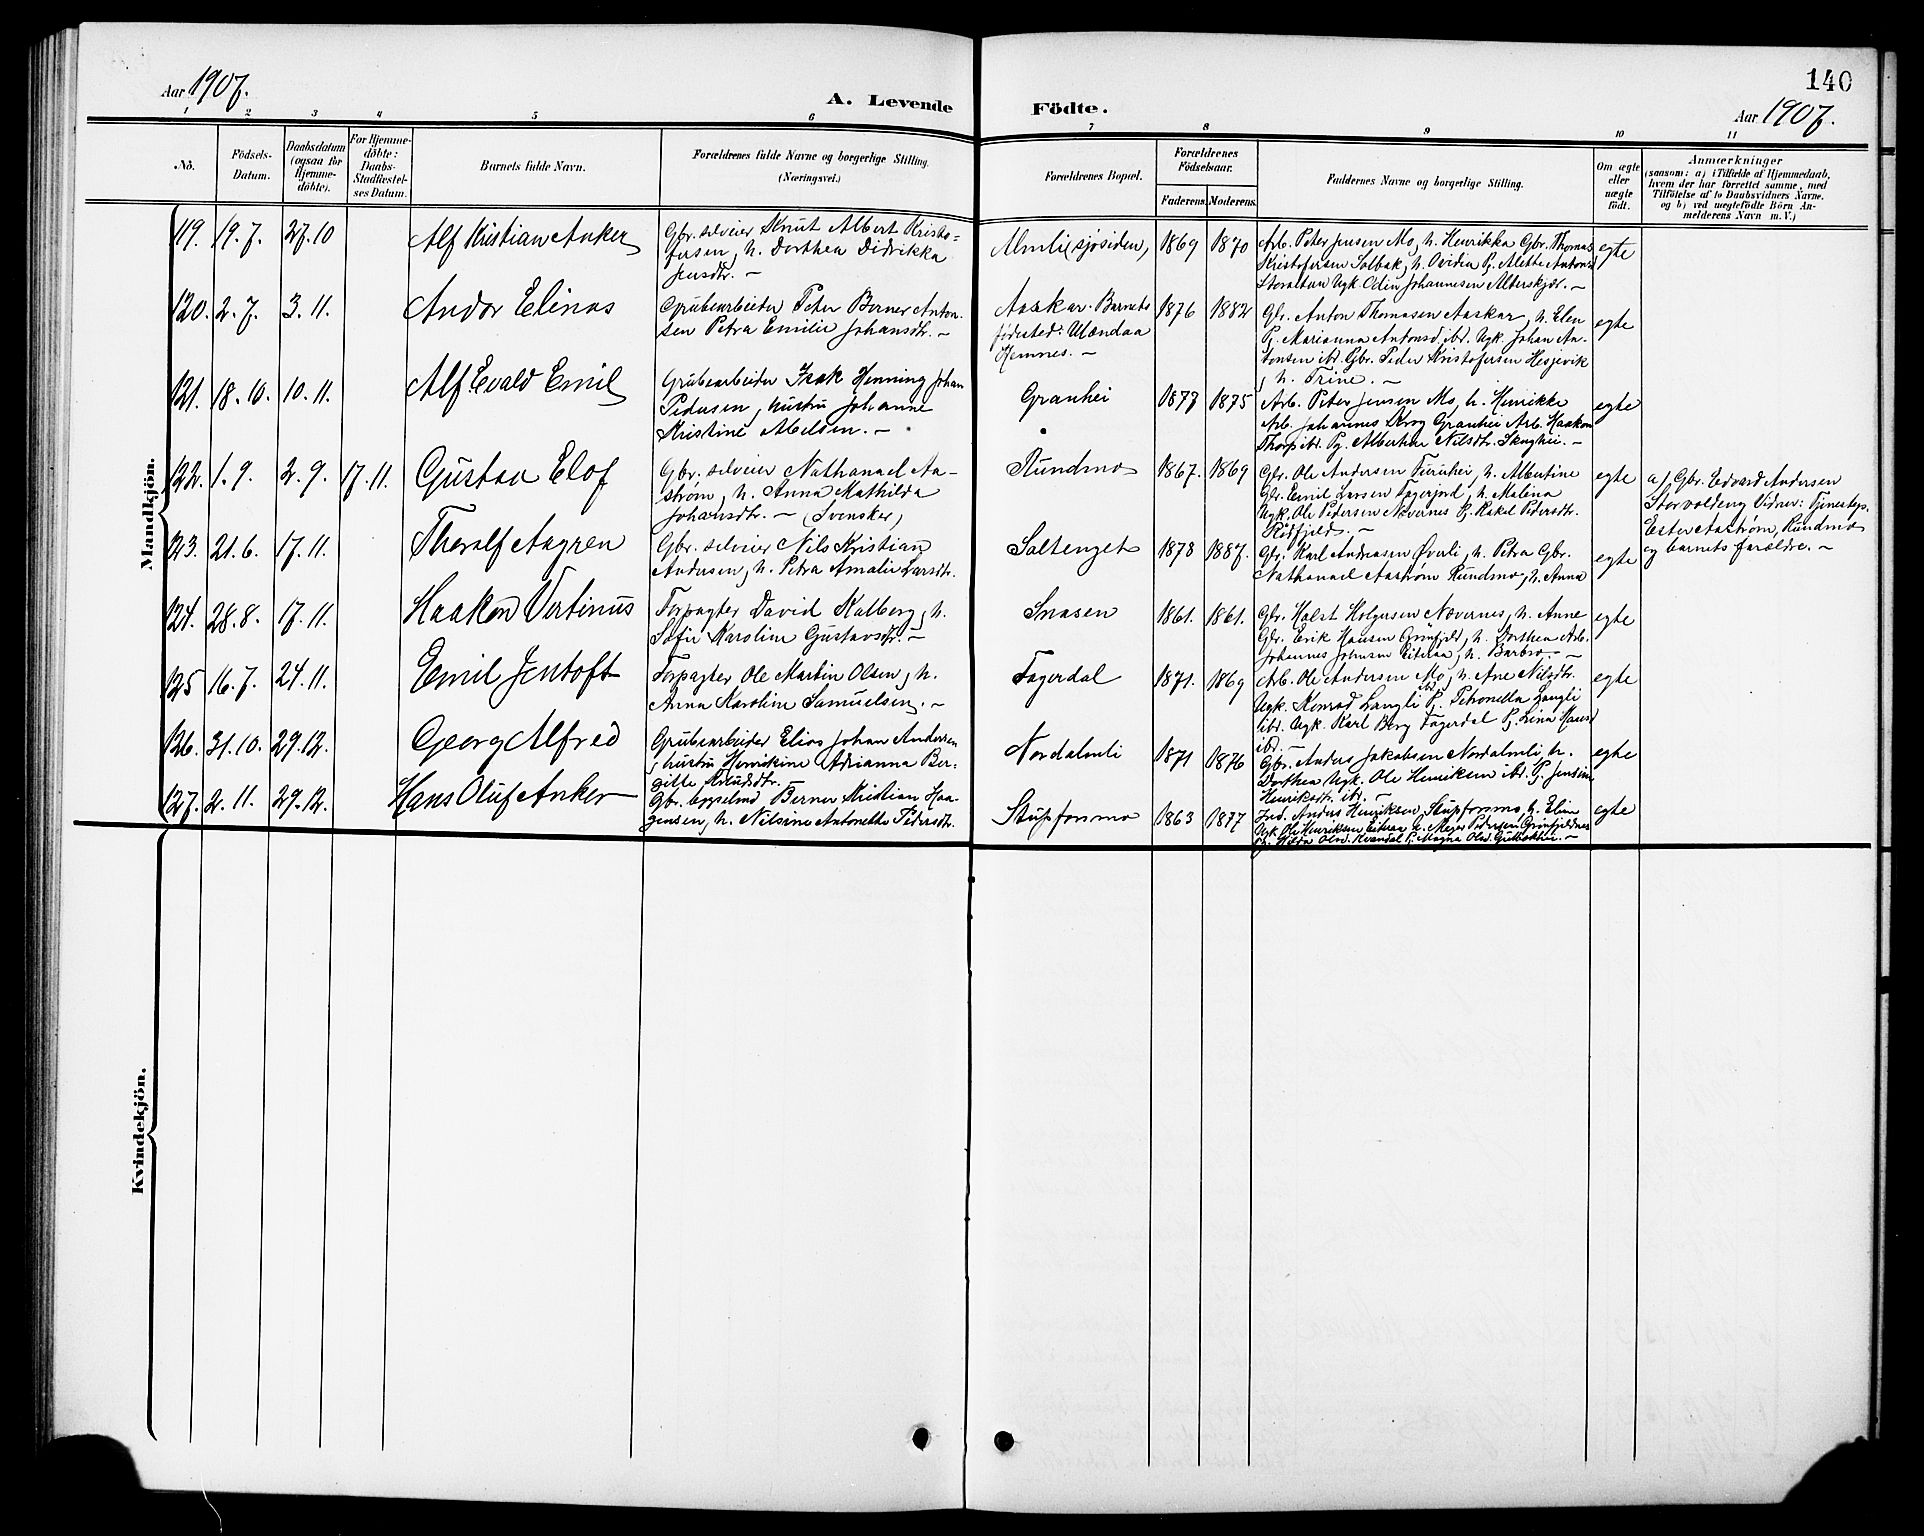 140
Aar 1907.
A. Levende
Födte.
Aar 1907.
1 2 3 4 5 6 7 8 9 10 11
Nö.
Födsels-
Datum.
Daabsdatum
(ogsaa för
Hjemme-
döbte).
For Hjemme-
döbte:
Daabs-
Stadfæstel-
ses Datum.
Barnets fulde Navn.
Forældrenes fulde Navne og borgerlige Stilling.
(Næringsvei.)
Forældrenes Bopæl.
Forældrenes
Födselsaar.
Faderens. Moderens.
Faddernes Navne og borgerlige Stilling.
Om ægte
eller
uægte
födt.
Anmærkninger
(saasom: a) i Tilfælde af Hjemmedaab,
hvem der har forrettet samme, med
Tilföielse af to Daabsvidners Navne.
og b) ved uægtefödte Börn An-
melderens Navn m. V.)
Mandkjön.
119. 19.7. 27.10 Alf Kristian Anker
Gbr. selveier Knut Albert Kristo-
fersen, h. Dorthea Didrikka
Jensdtr. —
Almli (sjøsiden) 1869 1870
Arb. Peter Jensen Mo, h. Henrikka Gbr. Thomas
Kristofersen Solbak, h. Ovidia Pg. Alette Antonsd
Ugk. Odin Johannesen Alterskjær. —
egte
120. 2.7. 3.11. Andor Elinas
Grubearbeider Peter Berner Anton-
sen Petra Emilie Johansdtr. —
Aaskar. Barnets
fødested: Ulændaa
Hemnes. —
1876 1882
Gbr. Anton Thomasen Aaskar, h. Elen
Pg. Marianna Antonsd. ibd. Ugk. Johan An-
tonsen ibd. Gbr. Peder Kristofersen Hesjevik
, h. Trine. —
egte
121. 18.10. 10.11. Alf Evald Emil
Grubearbeider Isak Henning Johan
Pedersen, hustru Johanne
Kristine Abelsen. —
Granhei 1877 1875
Arb. Peter Jensen Mo, h. Henrikke
Arb. Johannes Krog Granhei Arb. Haakon
Thorp ibd. Pg. Albertine Nilsdtr. Skoghei. —
egte
122. 1.9. 2.9. 17.11. Gustav Elof
Gbr. selveier Nathanael Aa-
strøm, h. Anna Mathilda
Johansdtr. — (Svensker)
Rundmo 1867. 1869
Gbr. Ole Andersen Furuhei, h. Albertine
Gbr. Emil Larsen Fagerjord, h. Malena
Ugk. Ole Pedersen Nævernes Pg. Rakel Pedersdtr.
Rødfjeld. —
egte
a) Gbr. Edvard Andersen
Storvoldeng Vidner: Tjenestepg.
Ester Aastrøm, Rundmo
og barnets forældre. —
123. 21.6. 17.11. Theralf Aagren
Gbr. selveier Nils Kristian
Andersen, h. Petra Amalie Larsdtr.
Saltenget 1878 1887.
Gbr. Karl Andreasen Øverli, h. Petra Gbr.
Nathanael Aastrøm Rundmo, h. Anna
egte
124. 28.8. 17.11. Haakon Vertinus
Forpagter David Kalberg, h.
Sofie Karoline Gustavsdtr. —
Snasen 1861. 1861.
Gbr. Holst Holgersen Nævernes, h. Anne
Gbr. Erik Hansen Grønfjeld, h. Dorthea Arb.
Johannes Johnsen Eiteraa, h. Barbro. —
egte
125 16.7. 24.11. Emil Jentoft
Forpagter Ole Martin Olsen, h.
Anna Karoline Samuelsen. —
Fagerdal 1871. 1869
Arb. Ole Andersen Mo, h. Ane Nilsdtr. ibd.
Ugk. Konrad Langli Pg. Petronella Langli
ibd. Ugk. Karl Berg Fagerdal Pg. Lina Hansd
ibd. —
egte
126. 31.10. 29.12. Georg Alfred
Grubearbeider Elias Johan Andersen
, hustru Henrikine Adrianna Ber-
gitte Knudsdtr.
Nordalmli 1871 1876
Gbr. Anders Jakobsen Nordalmli, h.
Dorthea Ugk. Ole Henriksen ibd. Pg. Jensine
Henriksdtr. ibd. —
egte
127. 2.11. 29.12. Hans Oluf Anker
Gbr. bygselmd Berner Kristian Haa-
gensen, h. Nilsine Antonette Pedersdtr.
Stupforsmo 1863 1877
Ind. Anders Henriksen Stupforsmo, h. Eline
Ugk Ole Henriksen Eiteraa, h. Meyer Pedersen Grønfjeldnes
Pg. Hilda Olsd. Kvandal Pg. Magna Olsd.
egte
Kvindekjön.